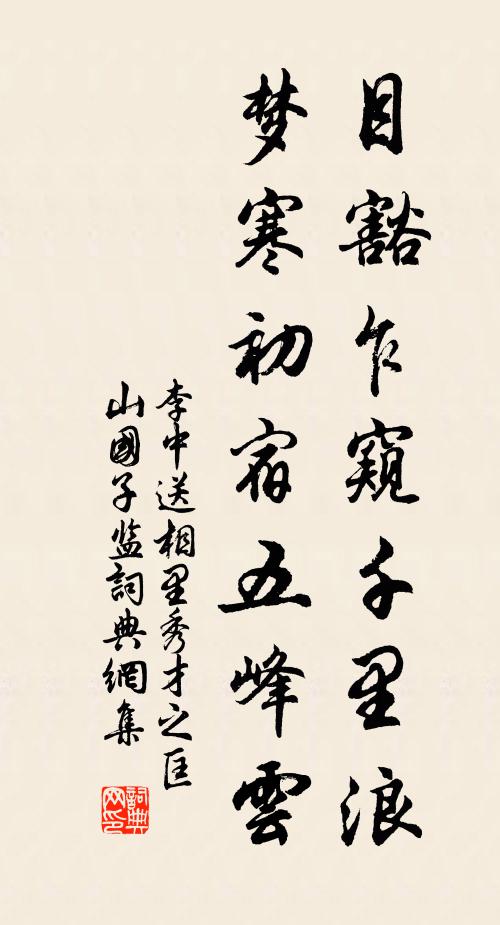 目豁乍窺千里浪
梦寒初宿五峰雲
李中送相里秀才之匡
山國子监詞典網集
詞典网印